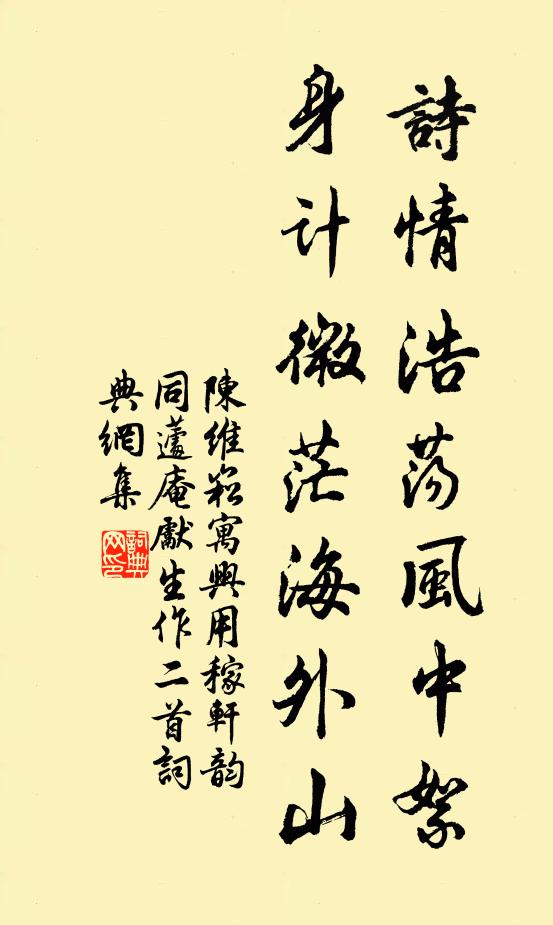 詩情浩荡風中絮
身计微茫海外山
陳維崧寓興用稼軒韵
同蘧庵獻生作二首詞
典網集
詞典
网印